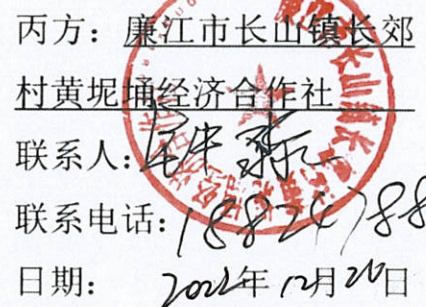 丙方：廉江市长山镇长郊
村黄坭埇经济合作社
联系人：
联系电话：18824788
日期：年12月26日